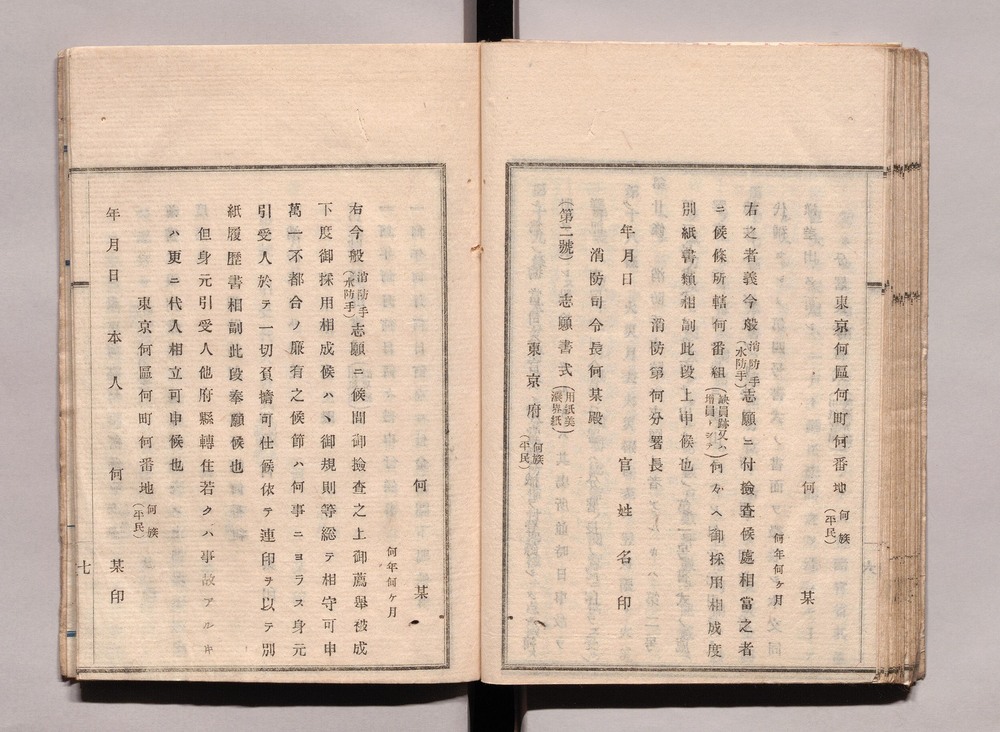 東京何區何町何番地 何族(平民)
何 某
何年何ヶ月
右之者義今般消防手(水防手)志願ニ付撿查候處相當之者
ニ候條所轄何番組(缺員跡又ハ增員トシテ)何々ヘ御採用相成度
別紙書類相副此段上申候也
消防第何分署長
年月日 官姓名印
消防司令長何某殿
(第二號)志願書式(用紙美濃界紙)
東京府 何族(平民)
何 某
何年何ヶ月
右今般消防手(水防手)志願ニ候間御撿查之上御薦舉被成
下度御採用相成候ハヽ御規則等総テ相守可申
萬一不都合ノ廉有之候節ハ何事ニヨラス身元
引受人於テ一切負擔可仕候依テ連印ヲ以テ別
紙履歷書相副此段奉願候也
但身元引受人他府縣轉住若クハ事故アルキ
ハ更ニ代人相立可申候也
東京何區何町何番地 何族(平民)
年月日 本人 何 某印
七